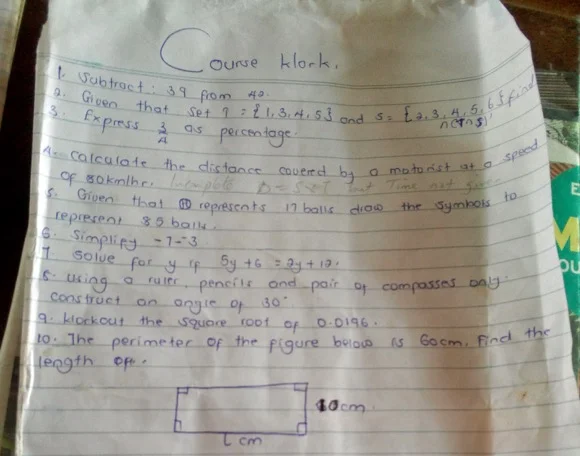 Course Work.
1. Subtract: 39 from 42.
2. Given that set q = {1, 3, 4, 5} and s = {2, 3, 4, 5, 6} find
n(q∩s)
3. Express 3/4 as percentage.
4. Calculate the distance covered by a motorist at a speed
of 80km/hr. D = S×T but Time not
5. Given that represents 17 balls draw the symbols to
represent 85 balls.
6. Simplify -7-3
7. Solve for y if 5y + 6 = 2y + 12.
8. Using a ruler, pencils and pair of compasses only.
Construct an angle of 30°
9. Workout the square root of 0.0196.
10. The perimeter of the figure below is 60cm. Find the
length of.
10cm.
L cm